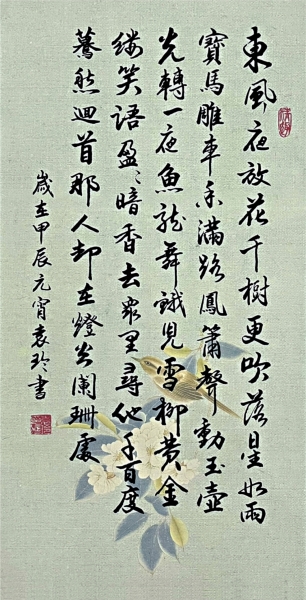 東風夜放花千樹更吹落星如雨
寶馬雕車香滿路鳳簫聲動玉壺
光轉一夜魚龍舞蛾兒雪柳黃金
縷笑語盈〻暗香去眾里尋他千百度
驀然迴首那人却在燈火闌珊處
歲在甲辰元宵袁玲書